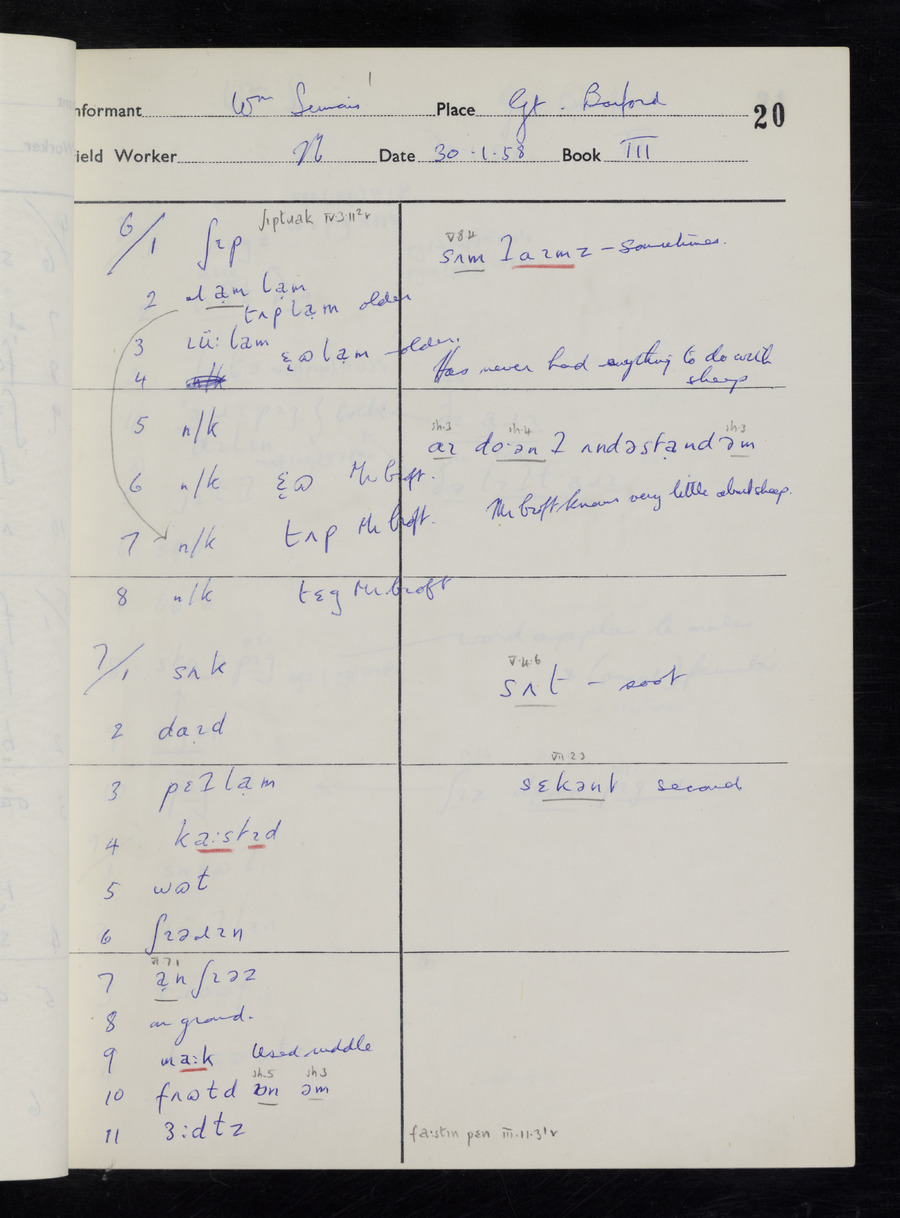 nformant Wm Place Gt. Barford 20
ield Worker N Date 30.1.58 Book III
6/1 ʃɪp ʃɪptɹak IV.3.11²v
V 8 4
sʌm ʈaɪmz – sometimes.
2 ạm lạm
tʌp lạm older
3 ɹü: lam
ɛ̣ɷ lạm older.
4 n/k
Has never had anything to do with sheep
5 n/k
sh.3 sh.4 sh.3
aɪ do·ən ʈ ʌndəstạnd əm
6 n/k ɛ̣ɷ Mr Croft.
Mr Croft knows very little about sheep.
7 n/k tʌp Mr Croft.
8 n/k tɛg Mr Croft
7/1 sʌk
V.4.6
sʌt – soot
2 daɪd
3 pɛʈ lạm
VII.2.3
sɛkənt second
4 ka:stɪd
5 wɷt
6 ʃɪədɪn
VI.7.1
7 ạn ʃɪəz
8 on ground.
9 ma:k Used ruddle
sh.5 sh 3
10 fɹɷtd ɒn əm
11 ɜ:dtz
fa:stɪn pɛn III.11.3¹v